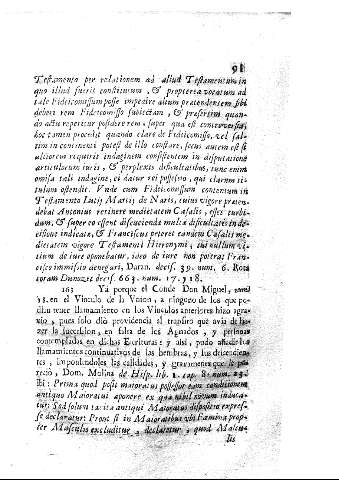 91
Testamento per relationem ad aliud Testamentum in
quo illud fuerit constitutum, & propterea vocatum ad
tale Fideicomissum posse impedire alium pretendentem sibi
deberi rem Fideicomisso subiectam, & presertim quan-
do actu reperitur possidere rem, super qua est controversia,
hoc tamen procedit quando claro de Fideicomisso, vel sal-
tim in continenti potest de illo constare, secus autem est si
ulteorem requirit indaginem consistentem in disputatione
articulorum iuris, & perplexis dificultatibus, tunc enim
omisa tali indagine, ei datur rei possessio, qui clarum ti-
tulum ostendit. Unde cum Fideicomissum contentum in
Testamento Lutij Marij de Naris, cuius vigore preten-
debat Antonius retinere medietatem Casalis, esset turbi-
dum, & super eo essent discutienda multa dificultatis in de-
cisione indicata, & Franciscus peteret eamdem Casalis me-
dietatem vigore Testamenti Hieronymi, cui nullum vi-
tium de iure opimebatur, ideo de iure non potera; Fran-
cisco immisio denegari, Duran. decis. 39. num. 6. Rota
coram Dunozet decis. 663. num. 17. y 18.
163 Yá porque el Conde Don Miguel, num.
18. en el Vinculo de la Vnion, a ninguno de los que po-
dian traer llamamiento en los Vinculos anteriores hizo agra-
vio, pues solo dió providencia al transito que avia de ha-
zer la sucession, en falta de los Agnados, y personas
contempladas en dichas Escrituras y assi, pudo añadir
llamamientos continuativos de las hembras, y sus descendien-
tes, imponiendoles las calidades, y gravamenes que le pa-
reció, Dom. Molina de Hisp. lib. 1. cap. 8. num. 23.
ibi: Prima quod possit maioratus possessor eam conditionem
antiquo Maioratui aponere ex qua nihil novum induca-
tur: Sed solum tacita antiqui Maioratus dispositio expres-
se declaratur: Prout si in Maioratibus vbi Fæmina prop-
ter Masculos excluditur, declaratur, quod Mascu-
lis